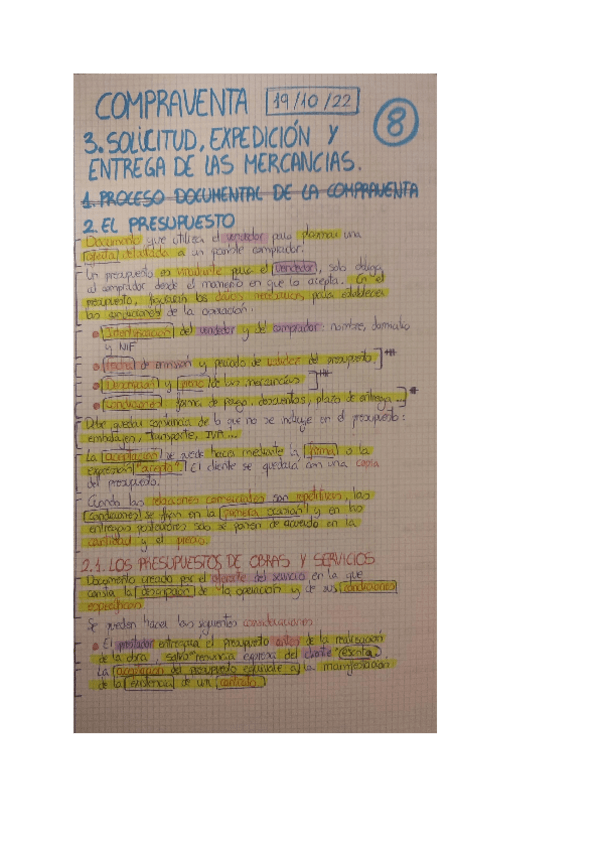 COMPRAVENTA 19/10/22
8
3. SOLICITUD, EXPEDICIÓN Y
ENTREGA DE LAS MERCANCIAS.
1. PROCESO DOCUMENTAL DE LA COMPRAVENTA
2. EL PRESUPUESTO
Documento que utiliza el vendedor para plasmar una
oferta detallada a un posible comprador.
Un presupuesto es vinculante para el vendedor, solo obliga
al comprador desde el momento en que lo acepta. En el
presupuesto, figurarán los datos necesarios para establecer
las condiciones de la operación.
• Identificación del vendedor y del comprador: nombres, domicilio
y NIF
• Fecha de emisión y periodo de validez del presupuesto.
• Descripción y precio de las mercancías
• Condiciones: forma de pago, descuentos, plazo de entrega...
Debe quedar constancia de lo que no se incluye en el presupuesto:
embalajes, transporte, IVA...
La aceptación se puede hacer mediante la firma o la
expresión "acepto". El cliente se quedará con una copia
del presupuesto.
Cuando las relaciones comerciales son repetitivas, las
condiciones se fijan en la primera ocasión y en las
entregas posteriores solo se ponen de acuerdo en la
cantidad y el precio.
2.1. LOS PRESUPUESTOS DE OBRAS Y SERVICIOS
Documento creado por el oferente del servicio en la que
consta la descripción de la operación y de sus condiciones
específicas.
Se pueden hacer las siguientes consideraciones:
• El prestador entregará el presupuesto antes de la realización
de la obra, salvo renuncia expresa del cliente (escrita).
La aceptación del presupuesto equivale a la manifestación
de la existencia de un contrato.